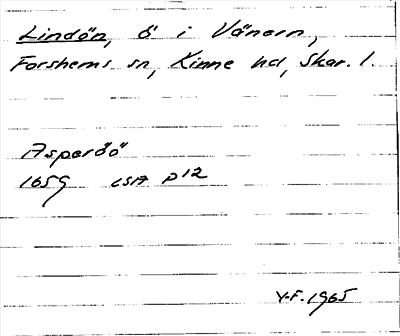 Lindön, ö i Vänern,
Forshems sn, Kinne hd, Skar. l.
Asperöö
1659 LSA P12
V.F. 1965